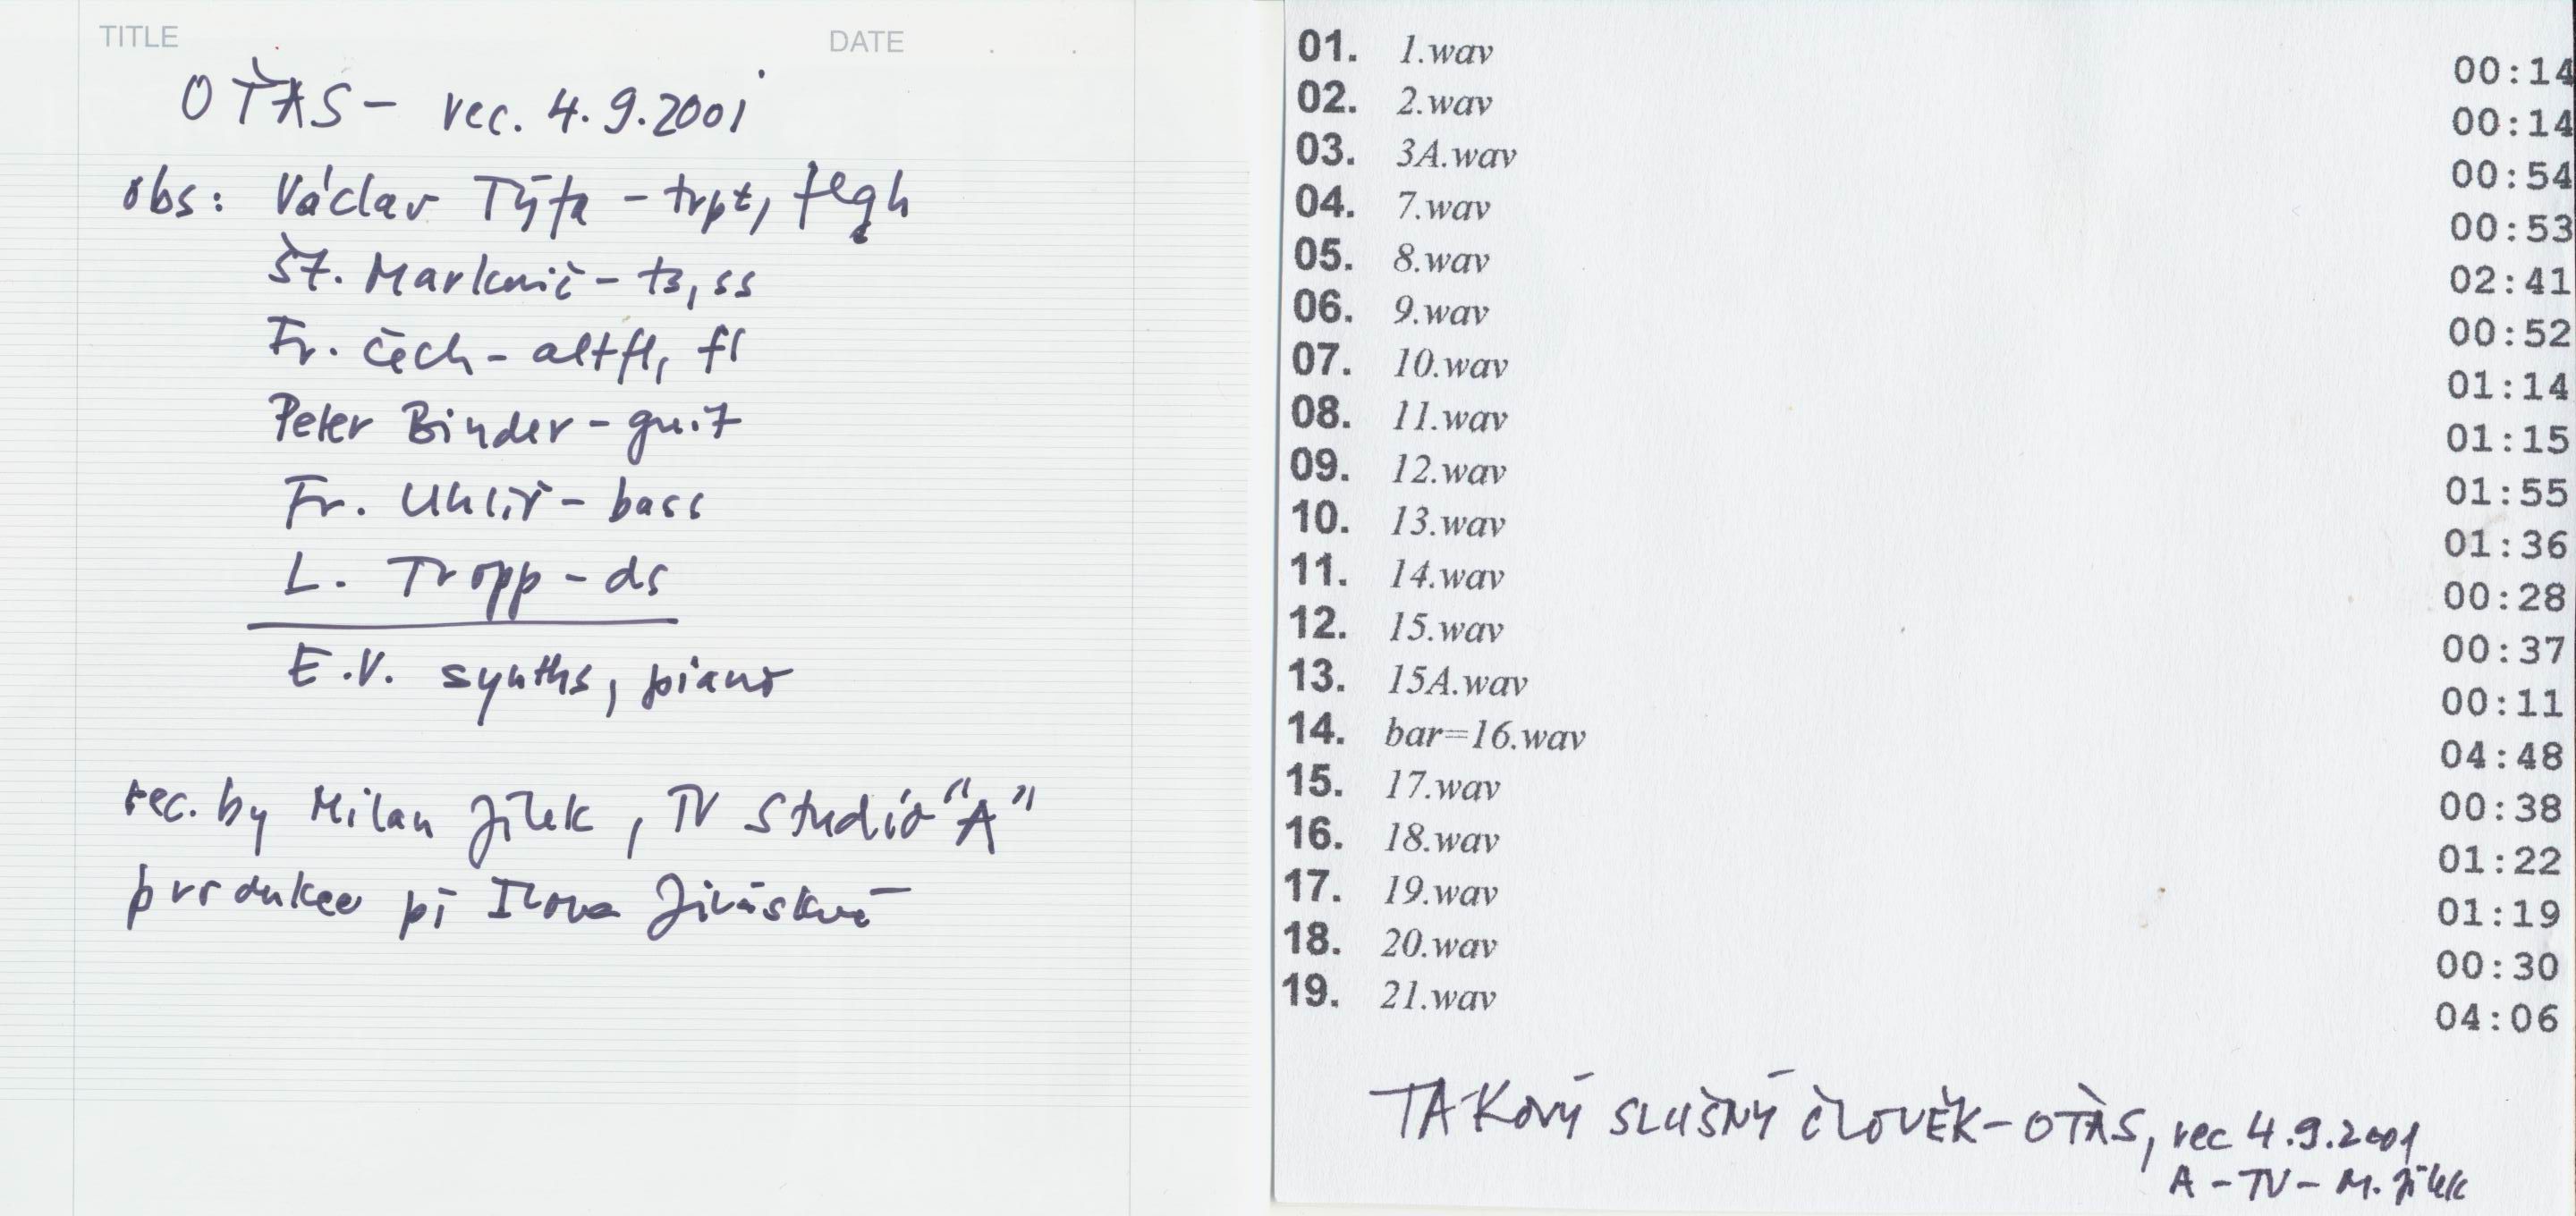 TITLE DATE
OŤAS - rec. 4.9.2001
obs: Václav Týfa - trpt, flgh
Št. Markovič - ts, ss
Fr. Čech - altfl, fl
Peter Binder - guit
Fr. Uhlíř - bass
L. Tropp - ds
E.V. synths, piano
rec. by Milan Jílek, TV Studio "A"
produkce pí Ilona Jirásková
01. 1.wav 00:14
02. 2.wav 00:14
03. 3A.wav 00:54
04. 7.wav 00:53
05. 8.wav 02:41
06. 9.wav 00:52
07. 10.wav 01:14
08. 11.wav 01:15
09. 12.wav 01:55
10. 13.wav 01:36
11. 14.wav 00:28
12. 15.wav 00:37
13. 15A.wav 00:11
14. bar=16.wav 04:48
15. 17.wav 00:38
16. 18.wav 01:22
17. 19.wav 01:19
18. 20.wav 00:30
19. 21.wav 04:06
TAKOVÝ SLUŠNÝ ČLOVĚK - OŤAS, rec 4.9.2001
A - TV - M. Jílek